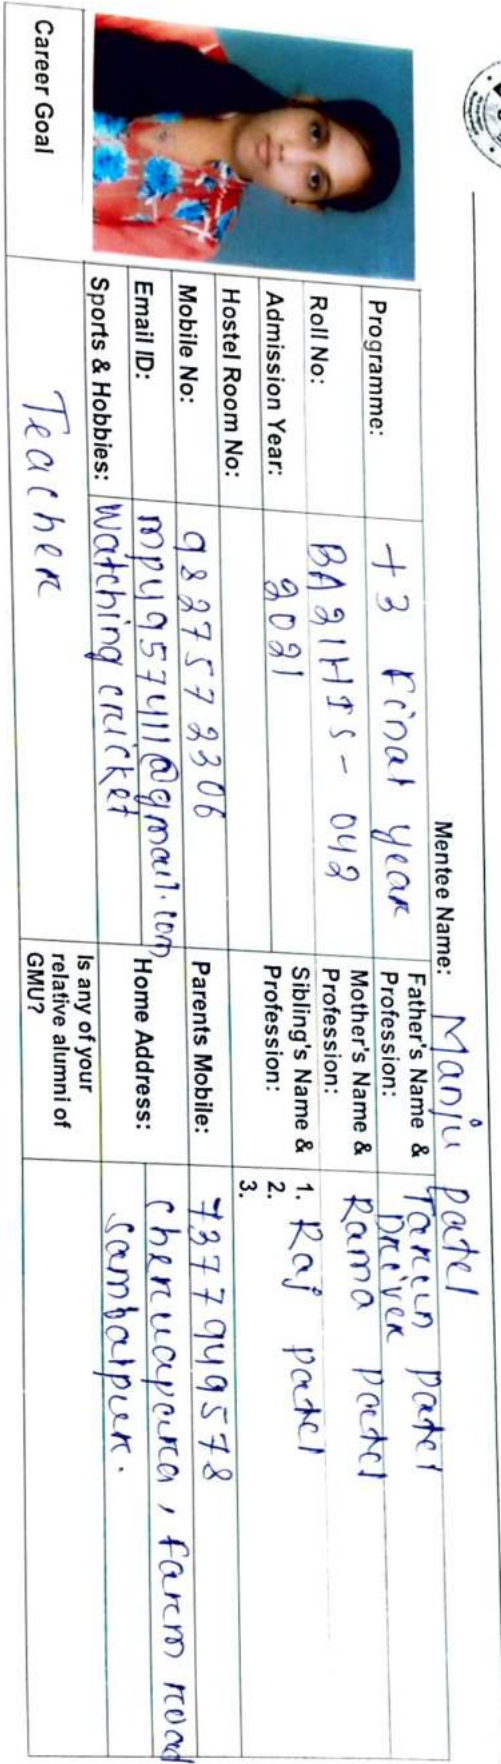 Mentee Name: Manju patel
Programme: +3 Final year
Father's Name & Profession: Tarun patel Driver
Roll No: BA21HIS - 042
Mother's Name & Profession: Rama patel
Admission Year: 2021
Sibling's Name & Profession: 1. Raj patel
2.
3.
Hostel Room No:
Mobile No: 9827572306
Parents Mobile: 7377949578
Email ID: mpy957411@gmail.com
Home Address: cheruapara, farm road
sambalpur.
Sports & Hobbies: Watching cricket
Is any of your
relative alumni of
GMU?
Career Goal
Teacher